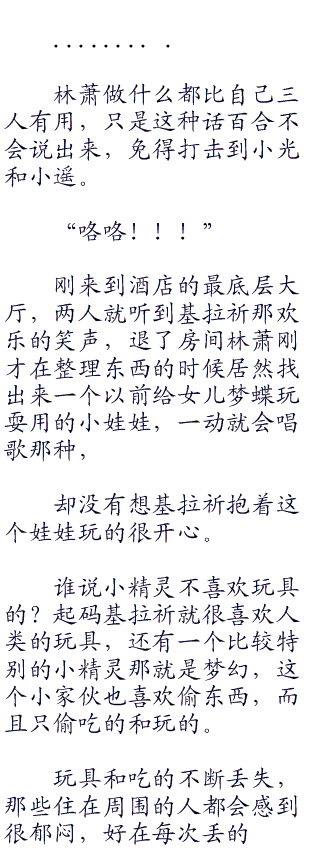 ......... .
林萧做什么都比自己三
人有用，只是这种话百合不
会说出来，免得打击到小光
和小遥。
“咯咯！！！”
刚来到酒店的最底层大
厅，两人就听到基拉祈那欢
乐的笑声，退了房间林萧刚
才在整理东西的时候居然找
出来一个以前给女儿梦蝶玩
耍用的小娃娃，一动就会唱
歌那种，
却没有想基拉祈抱着这
个娃娃玩的很开心。
谁说小精灵不喜欢玩具
的？起码基拉祈就很喜欢人
类的玩具，还有一个比较特
别的小精灵那就是梦幻，这
个小家伙也喜欢偷东西，而
且只偷吃的和玩的。
玩具和吃的不断丢失，
那些住在周围的人都会感到
很郁闷，好在每次丢的